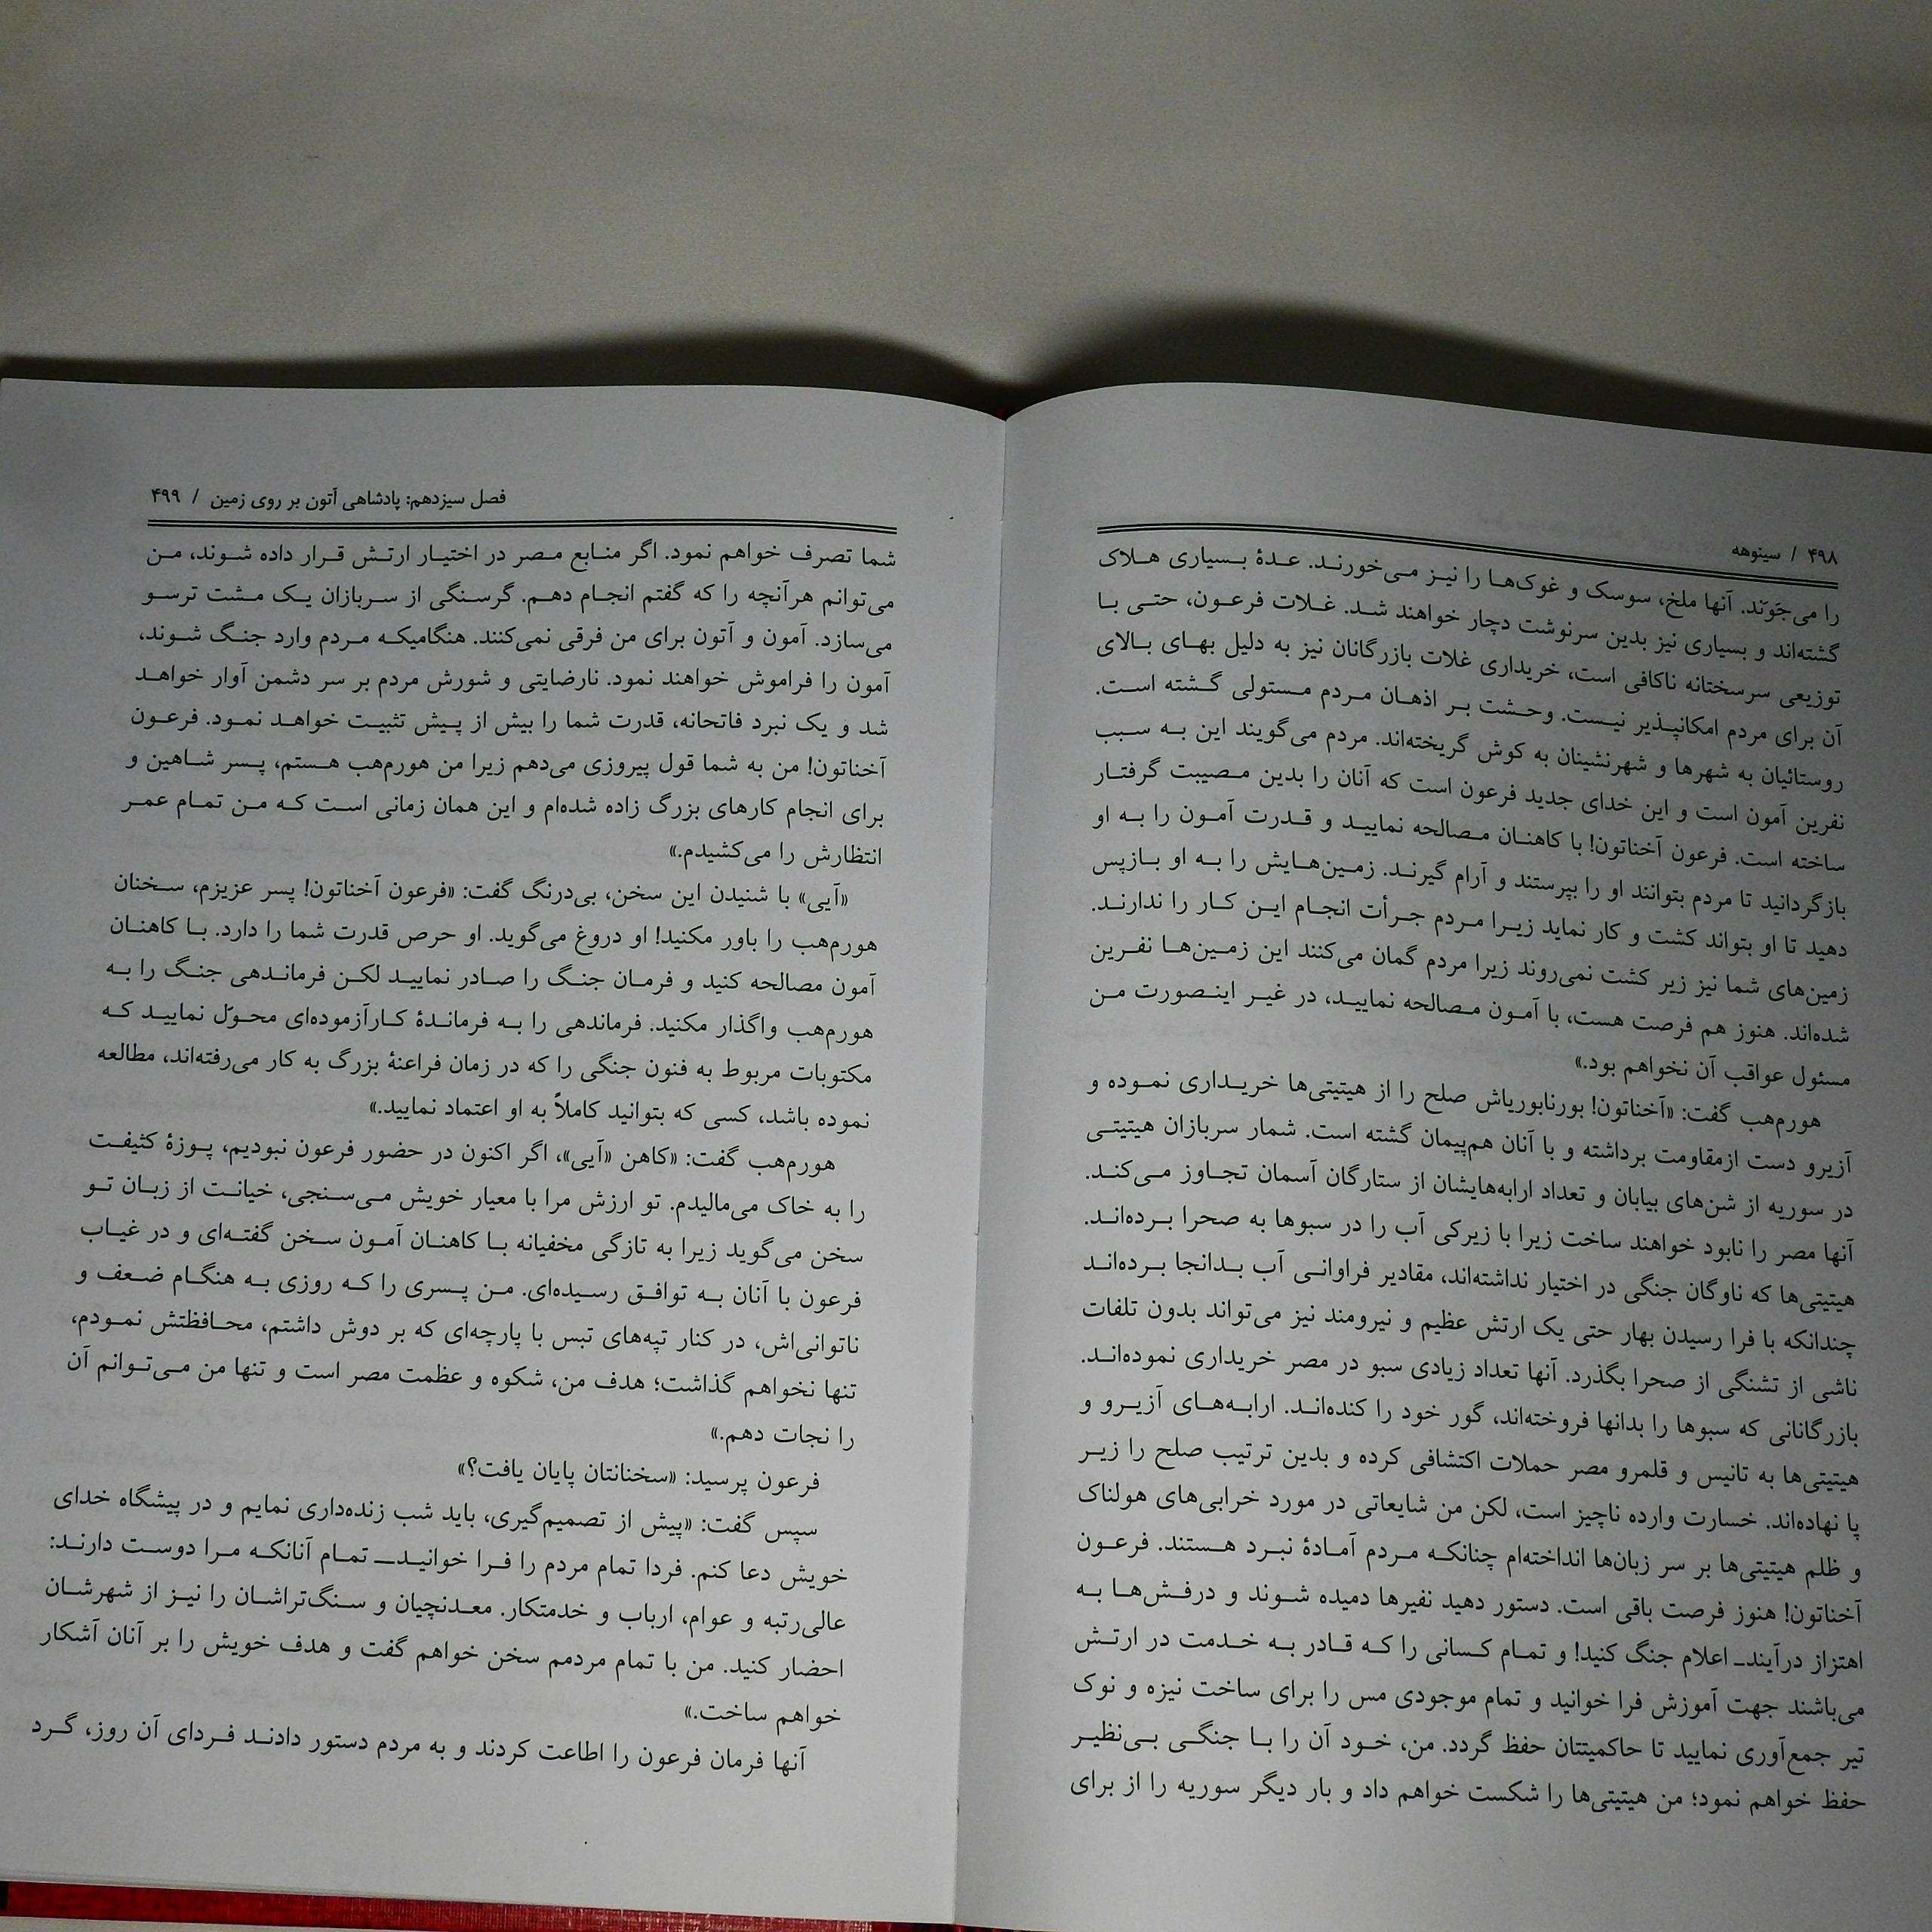 ۴۹۸ / سینوهه
را می‌جَوَند. آنها ملخ، سوسک و غوک‌ها را نیز می‌خورند. عدهٔ بسیاری هلاک
گشته‌اند و بسیاری نیز بدین سرنوشت دچار خواهند شد. غلات فرعون، حتی با
توزیعی سرسختانه ناکافی است، خریداری غلات بازرگانان نیز به دلیل بهای بالای
آن برای مردم امکانپذیر نیست. وحشت بر اذهان مردم مستولی گشته است.
روستائیان به شهرها و شهرنشینان به کوش گریخته‌اند. مردم می‌گویند این به سبب
نفرین آمون است و این خدای جدید فرعون است که آنان را بدین مصیبت گرفتار
ساخته است. فرعون آخناتون! با کاهنان مصالحه نمایید و قدرت آمون را به او
بازگردانید تا مردم بتوانند او را بپرستند و آرام گیرند. زمین‌هایش را به او بازپس
دهید تا او بتواند کشت و کار نماید زیرا مردم جرأت انجام این کار را ندارند.
زمین‌های شما نیز زیر کشت نمی‌روند زیرا مردم گمان می‌کنند این زمین‌ها نفرین
شده‌اند. هنوز هم فرصت هست، با آمون مصالحه نمایید، در غیر اینصورت من
مسئول عواقب آن نخواهم بود.»
هورم‌هب گفت: «آخناتون! بورنابوریاش صلح را از هیتیتی‌ها خریداری نموده و
آزیرو دست ازمقاومت برداشته و با آنان هم‌پیمان گشته است. شمار سربازان هیتیتی
در سوریه از شن‌های بیابان و تعداد ارابه‌هایشان از ستارگان آسمان تجاوز می‌کند.
آنها مصر را نابود خواهند ساخت زیرا با زیرکی آب را در سبوها به صحرا برده‌اند.
هیتیتی‌ها که ناوگان جنگی در اختیار نداشته‌اند، مقادیر فراوانی آب بدانجا برده‌اند
چندانکه با فرا رسیدن بهار حتی یک ارتش عظیم و نیرومند نیز می‌تواند بدون تلفات
ناشی از تشنگی از صحرا بگذرد. آنها تعداد زیادی سبو در مصر خریداری نموده‌اند.
بازرگانانی که سبوها را بدانها فروخته‌اند، گور خود را کنده‌اند. ارابه‌های آزیرو و
هیتیتی‌ها به تانیس و قلمرو مصر حملات اکتشافی کرده و بدین ترتیب صلح را زیر
پا نهاده‌اند. خسارت وارده ناچیز است، لکن من شایعاتی در مورد خرابی‌های هولناک
و ظلم هیتیتی‌ها بر سر زبان‌ها انداخته‌ام چنانکه مردم آمادهٔ نبرد هستند. فرعون
آخناتون! هنوز فرصت باقی است. دستور دهید نفیرها دمیده شوند و درفش‌ها به
اهتزاز درآیندـ اعلام جنگ کنید! و تمام کسانی را که قادر به خدمت در ارتش
می‌باشند جهت آموزش فرا خوانید و تمام موجودی مس را برای ساخت نیزه و نوک
تیر جمع‌آوری نمایید تا حاکمیتتان حفظ گردد. من، خود آن را با جنگی بی‌نظیر
حفظ خواهم نمود؛ من هیتیتی‌ها را شکست خواهم داد و بار دیگر سوریه را از برای
فصل سیزدهم: پادشاهی آتون بر روی زمین / ۴۹۹
شما تصرف خواهم نمود. اگر منابع مصر در اختیار ارتش قرار داده شوند، من
می‌توانم هرآنچه را که گفتم انجام دهم. گرسنگی از سربازان یک مشت ترسو
می‌سازد. آمون و آتون برای من فرقی نمی‌کنند. هنگامیکه مردم وارد جنگ شوند،
آمون را فراموش خواهند نمود. نارضایتی و شورش مردم بر سر دشمن آوار خواهد
شد و یک نبرد فاتحانه، قدرت شما را بیش از پیش تثبیت خواهد نمود. فرعون
آخناتون! من به شما قول پیروزی می‌دهم زیرا من هورم‌هب هستم، پسر شاهین و
برای انجام کارهای بزرگ زاده شده‌ام و این همان زمانی است که من تمام عمر
انتظارش را می‌کشیدم.»
«آیی» با شنیدن این سخن، بی‌درنگ گفت: «فرعون آخناتون! پسر عزیزم، سخنان
هورم‌هب را باور مکنید! او دروغ می‌گوید. او حرص قدرت شما را دارد. با کاهنان
آمون مصالحه کنید و فرمان جنگ را صادر نمایید لکن فرماندهی جنگ را به
هورم‌هب واگذار مکنید. فرماندهی را به فرماندهٔ کارآزموده‌ای محوّل نمایید که
مکتوبات مربوط به فنون جنگی را که در زمان فراعنهٔ بزرگ به کار می‌رفته‌اند، مطالعه
نموده باشد، کسی که بتوانید کاملاً به او اعتماد نمایید.»
هورم‌هب گفت: «کاهن «آیی»، اگر اکنون در حضور فرعون نبودیم، پوزهٔ کثیفت
را به خاک می‌مالیدم. تو ارزش مرا با معیار خویش می‌سنجی، خیانت از زبان تو
سخن می‌گوید زیرا به تازگی مخفیانه با کاهنان آمون سخن گفته‌ای و در غیاب
فرعون با آنان به توافق رسیده‌ای. من پسری را که روزی به هنگام ضعف و
ناتوانی‌اش، در کنار تپه‌های تبس با پارچه‌ای که بر دوش داشتم، محافظتش نمودم،
تنها نخواهم گذاشت؛ هدف من، شکوه و عظمت مصر است و تنها من می‌توانم آن
را نجات دهم.»
فرعون پرسید: «سخنانتان پایان یافت؟»
سپس گفت: «پیش از تصمیم‌گیری، باید شب زنده‌داری نمایم و در پیشگاه خدای
خویش دعا کنم. فردا تمام مردم را فرا خوانیدـ تمام آنانکه مرا دوست دارند:
عالی‌رتبه و عوام، ارباب و خدمتکار. معدنچیان و سنگ‌تراشان را نیز از شهرشان
احضار کنید. من با تمام مردمم سخن خواهم گفت و هدف خویش را بر آنان آشکار
خواهم ساخت.»
آنها فرمان فرعون را اطاعت کردند و به مردم دستور دادند فردای آن روز، گرد